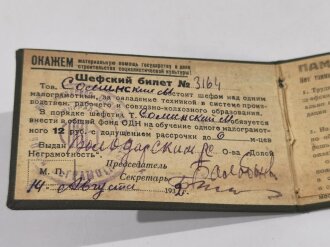 ОКАЖЕМ материальную помощь государству в деле
строительства социалистической культуры!
Шефский билет № 3164
Тов. Соминский состоит шефом над одним
малограмотным, за овладение техникой в системе произ-
водствен. рабочего и совхозно-колхозного образования.
В порядке шефства т. Соминский обязуется
внести в общий фонд ОДН на обучение одного малограмот-
ного 12 руб. с допущением рассрочки до 6 м-цев
Володарским РС О-ва „Долой
Неграмотность“.
Председатель
М. П. Секретарь
14 Августа
ПАМ